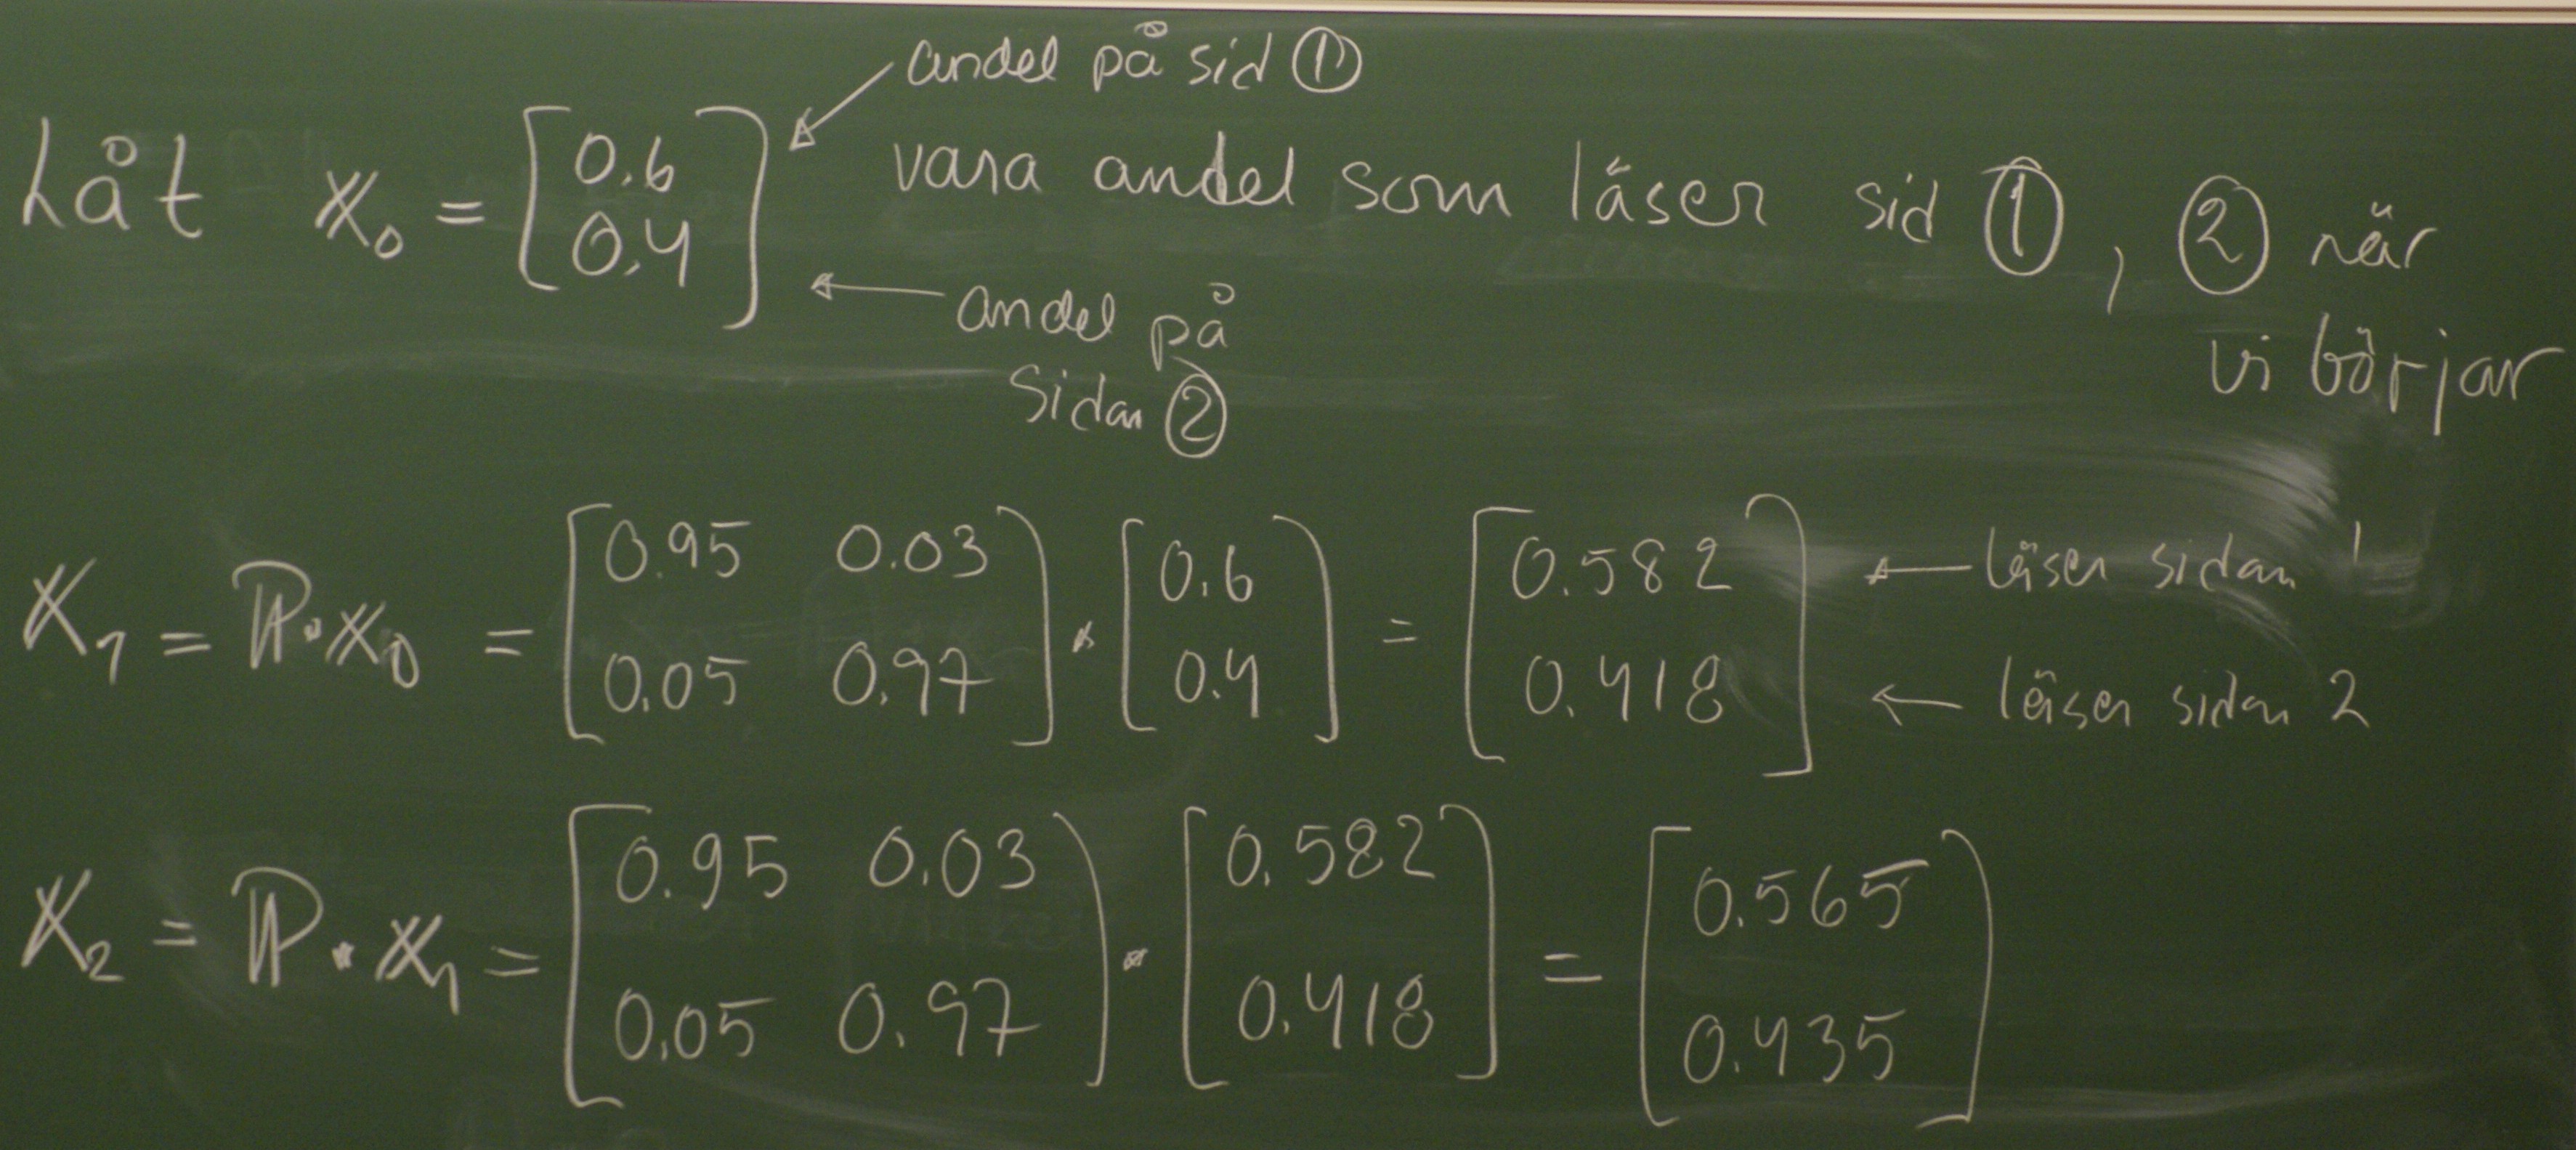 andel på sid ①
Låt X₀ = [0.6 0.4] vara andel som läser sid ①, ② när
andel på
vi börjar
sidan ②
X₁ = P·X₀ = [0.95 0.03 0.05 0.97] · [0.6 0.4] = [0.582 0.418] ← läser sidan 1
← läser sidan 2
X₂ = P·X₁ = [0.95 0.03 0.05 0.97] · [0.582 0.418] = [0.565 0.435]